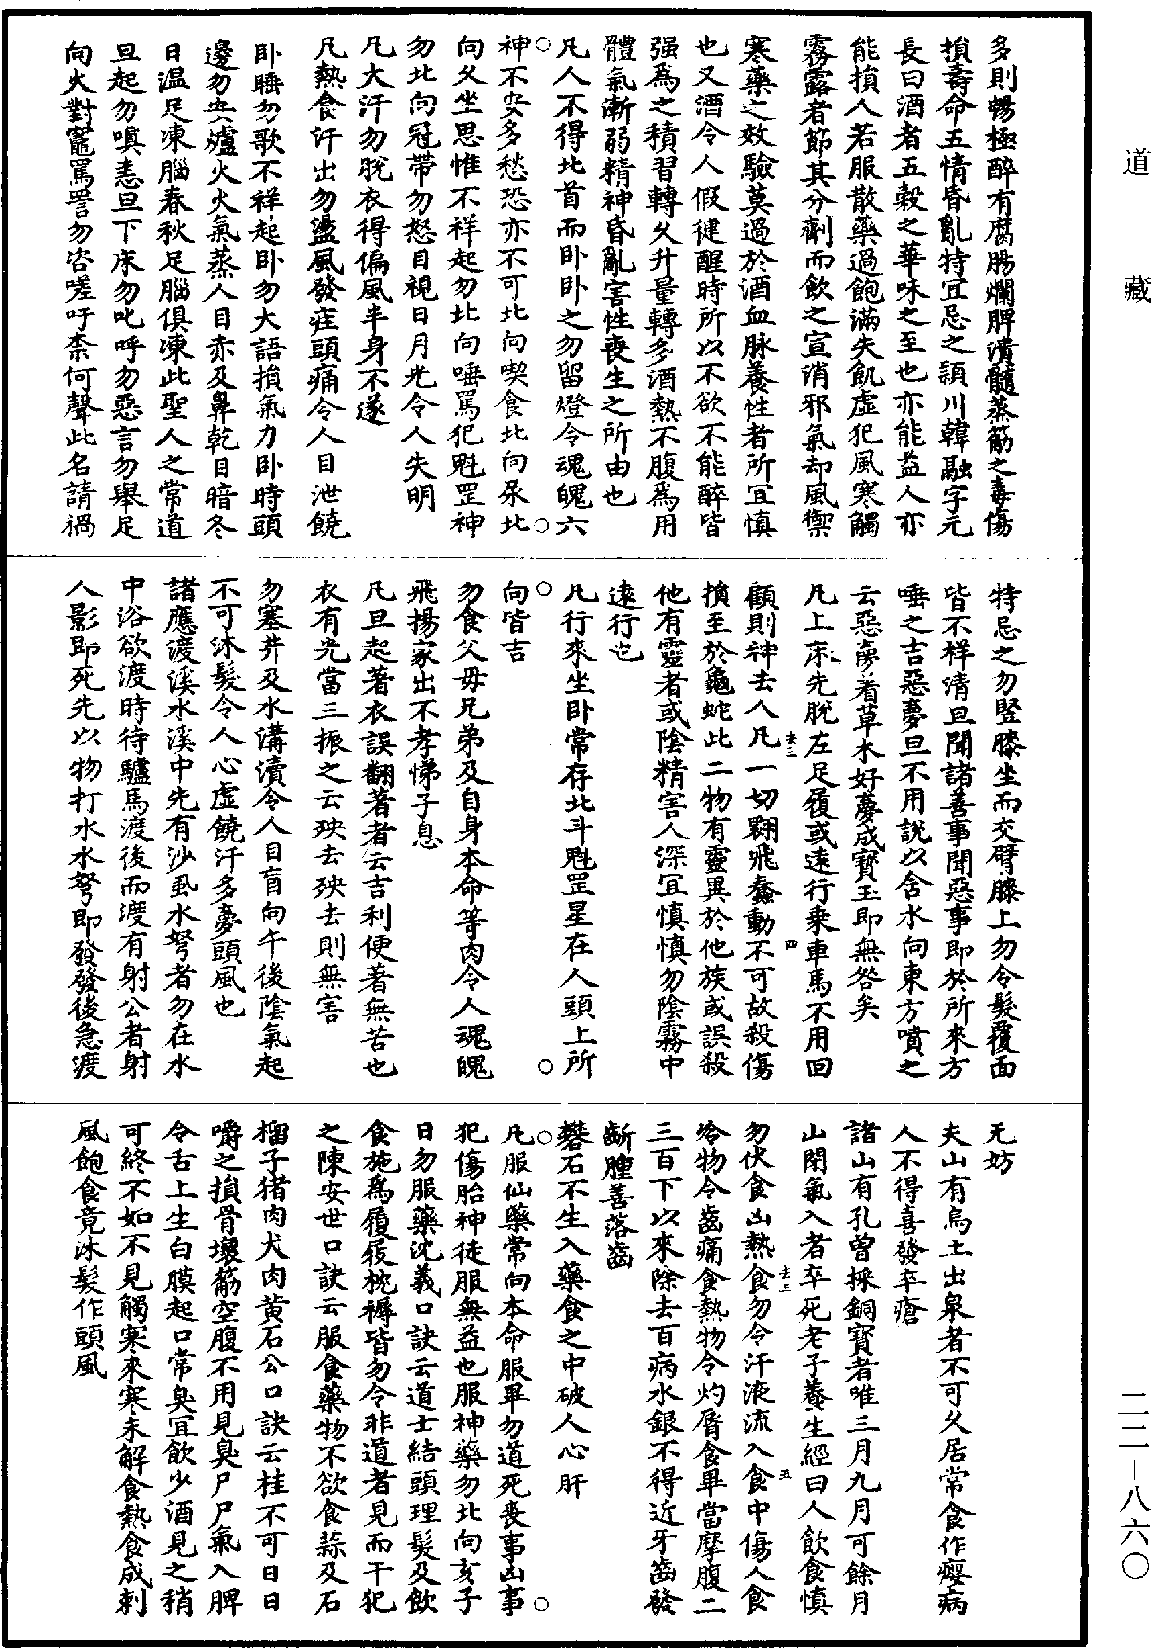 多則暢極醉有腐腸爛脾潰髓蒸筋之毒傷
損壽命五情昏亂特宜忌之頴川韓融字元
長曰酒者五穀之華味之至也亦能益人亦
能損人若服散藥過飽滿失飢虛犯風寒觸
霧露者節其分劑而飲之宣消邪氣却風禦
寒藥之效驗莫過於酒血脉養性者所宜慎
也又酒令人假健醒時所以不欲不能醉皆
强爲之積習轉久升量轉多酒熱不腹爲用
體氣漸弱精神昏亂害性喪生之所由也
凡人不得北首而卧卧之勿留燈令魂魄六
神不安多愁恐亦不可北向喫食北向尿北
向久坐思惟不祥起勿北向唾罵犯魁罡神
勿北向冠帶勿怒目視日月光令人失明
凡大汗勿脫衣得偏風半身不遂
凡熱食汗出勿盪風發痓頭痛令人目泄饒
卧睡勿歌不祥起卧勿大語損氣力卧時頭
邊勿安爐火火氣蒸人目赤及鼻乾目暗冬
日温足凍腦春秋足腦俱凍此聖人之常道
旦起勿嗔恚旦下床勿叱呼勿惡言勿舉足
向火對竈罵詈勿咨嗟吁柰何聲此名請禍
特忌之勿竪膝坐而交臂膝上勿令髮覆面
皆不祥清旦聞諸善事聞惡事即於所來方
唾之吉惡夢旦不用說以含水向東方噴之
云惡夢着草木好夢成寶玉即無咎矣
凡上床先脫左足履或遠行乘車馬不用回
顧則神去人凡一切翾飛蠢動不可故殺傷
損至於龜蛇此二物有靈異於他族或誤殺
他有靈者或陰精害人深宜慎慎勿陰霧中
遠行也
凡行來坐卧常存北斗魁罡星在人頭上所
向皆吉
勿食父母兄弟及自身本命等肉令人魂魄
飛揚家出不孝悌子息
凡旦起著衣誤翻著者云吉利便著無苦也
衣有光當三振之云殃去殃去則無害
勿塞井及水溝瀆令人目盲向午後陰氣起
不可沐髮令人心虛饒汗多夢頭風也
諸應渡溪水溪中先有沙虱水弩者勿在水
中浴欲渡時待驢馬渡後而渡有射公者射
人影即死先以物打水水弩即發發後急渡
无妨
夫山有烏土出泉者不可久居常食作癭病
人不得喜發卒瘡
諸山有孔曾採銅寶者唯三月九月可餘月
山閉氣入者卒死老子養生經曰人飲食慎
勿伏食山熱食勿令汗液流入食中傷人食
冷物令齒痛食熱物令灼脣食畢當摩腹二
三百下以來除去百病水銀不得近牙齒發
齗腫善落齒
礬石不生入藥食之中破人心肝
凡服仙藥常向本命服畢勿道死喪事凶事
犯傷胎神徒服無益也服神藥勿北向亥子
日勿服藥沈羲口訣云道士結頭理髮及飲
食施爲履屐枕褥皆勿令非道者見而干犯
之陳安世口訣云服食藥物不欲食蒜及石
榴子猪肉犬肉黃石公口訣云桂不可日日
嚼之損骨壞筋空腹不用見臭尸尸氣入脾
令舌上生白膜起口常臭宜飲少酒見之稍
可終不如不見觸寒來寒未解食熱食成刺
風飽食竟沐髮作頭風
去三
四
去三
五
道藏
二二-八六〇